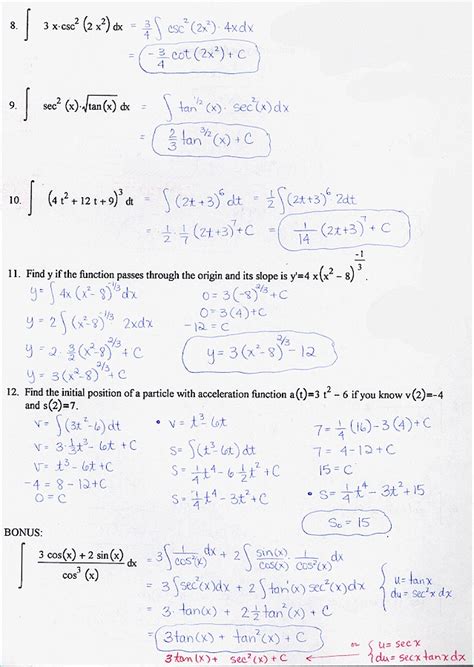 8. ∫ 3 x·csc² (2 x²) dx = 3/4 ∫ csc² (2x²) · 4x dx
= -3/4 cot (2x²) + C
9. ∫ sec² (x)·√tan(x) dx = ∫ tan^1/2 (x) · sec²(x) dx
= 2/3 tan^3/2 (x) + C
10. ∫ (4 t² + 12 t + 9)³ dt = ∫ (2t+3)⁶ dt = 1/2 ∫ (2t+3)⁶ 2dt
= 1/2 · 1/7 (2t+3)⁷ + C = 1/14 (2t+3)⁷ + C
11. Find y if the function passes through the origin and its slope is y'=4 x(x² − 8)^-1/3.
y = ∫ 4x (x²-8)^-1/3 dx
y = 2 ∫ (x²-8)^-1/3 2xdx
y = 2 · 3/2 (x²-8)^2/3 + C
y = 3 (x²-8)^2/3 + C
0 = 3(-8)^2/3 + C
0 = 3(4) + C
-12 = C
y = 3 (x²-8)^2/3 - 12
12. Find the initial position of a particle with acceleration function a(t)=3 t² − 6 if you know v(2)=-4
and s(2)=7.
v = ∫(3t²-6)dt
v = 3·1/3 t³ - 6t + C
v = t³ - 6t + C
-4 = 8 - 12 + C
0 = C
• v = t³ - 6t
s = ∫(t³-6t)dt
s = 1/4 t⁴ - 6 1/2 t² + C
s = 1/4 t⁴ - 3t² + C
7 = 1/4 (16) - 3(4) + C
7 = 4 - 12 + C
15 = C
• s = 1/4 t⁴ - 3t² + 15
S₀ = 15
BONUS:
∫ 3 cos(x) + 2 sin(x) / cos³ (x) dx = 3 ∫ 1/cos²(x) dx + 2 ∫ sin(x)/cos(x) · 1/cos²(x) dx
= 3 ∫ sec²(x)dx + 2 ∫ tan¹(x) sec²(x)dx
= 3 · tan(x) + 2 1/2 tan²(x) + C
= 3 tan(x) + tan²(x) + C
{ u = tan x
du = sec²x dx
3 tan(x) + sec²(x) + C ← or { u = sec x
du = sec x tan x dx